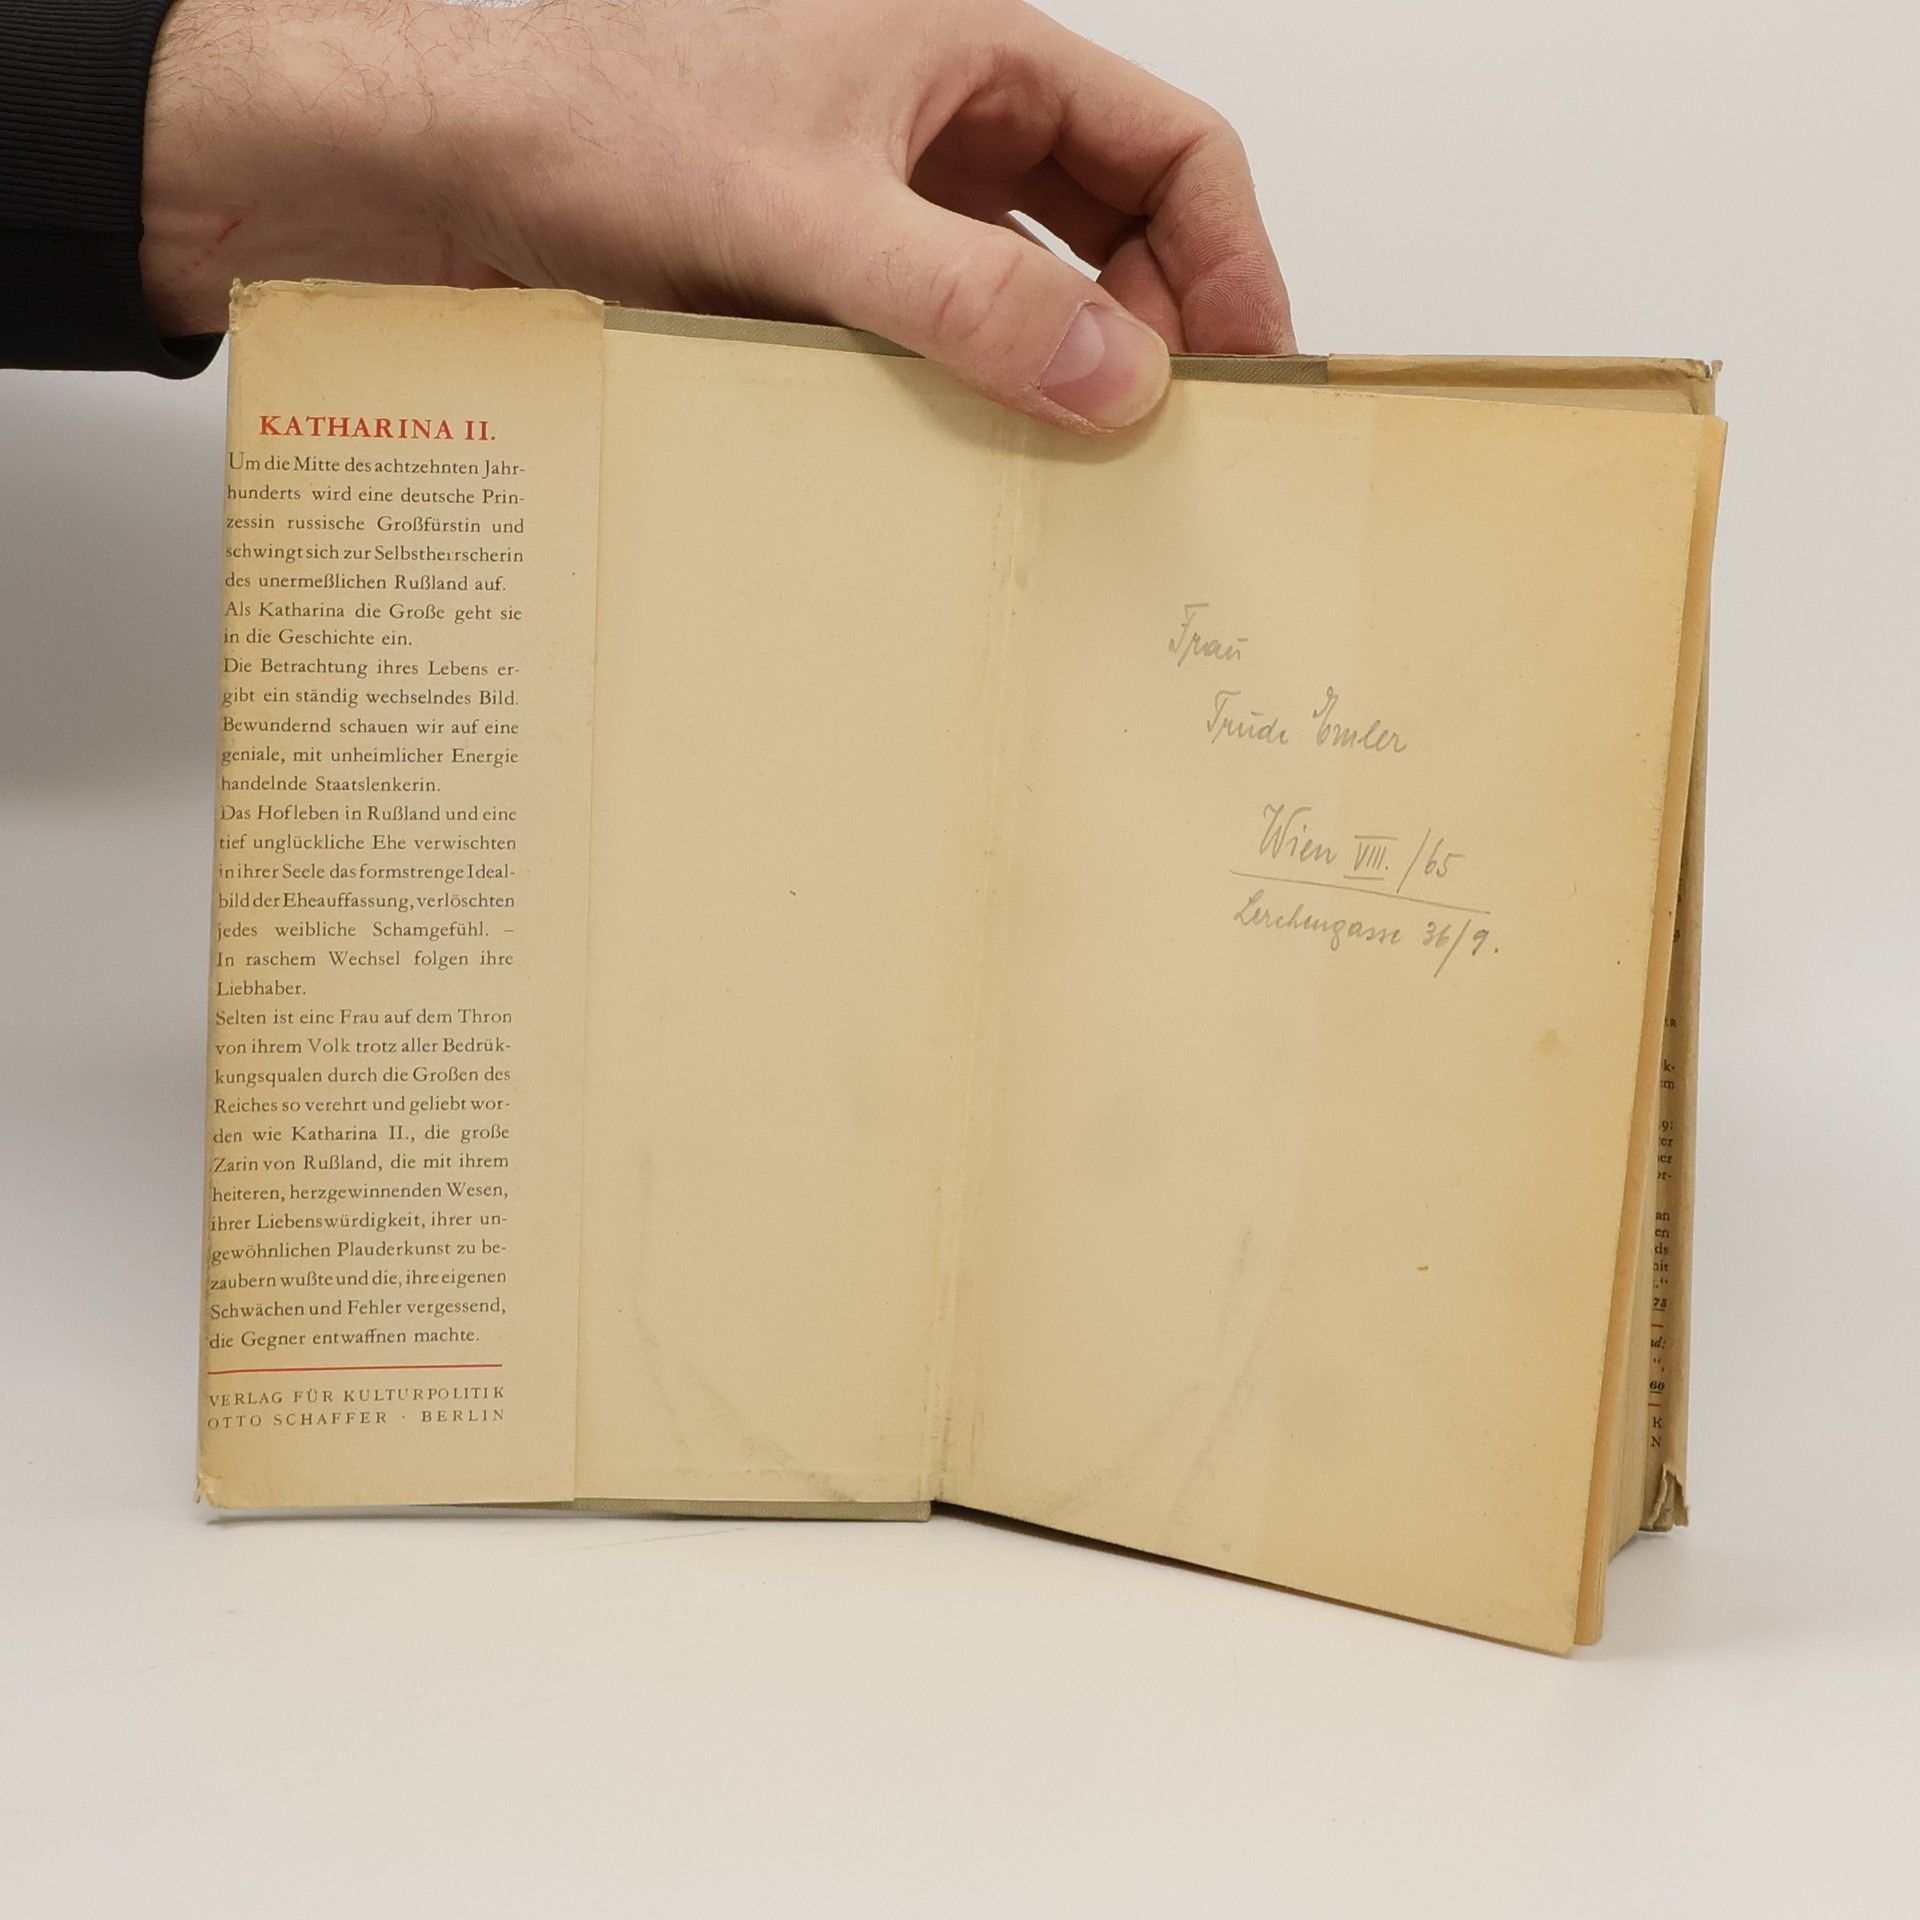 KATHARINA II.
Um die Mitte des achtzehnten Jahr-
hunderts wird eine deutsche Prin-
zessin russische Großfürstin und
schwingt sich zur Selbstherrscherin
des unermeßlichen Rußland auf.
Als Katharina die Große geht sie
in die Geschichte ein.
Die Betrachtung ihres Lebens er-
gibt ein ständig wechselndes Bild.
Bewundernd schauen wir auf eine
geniale, mit unheimlicher Energie
handelnde Staatslenkerin.
Das Hofleben in Rußland und eine
tief unglückliche Ehe verwischten
in ihrer Seele das formstrenge Ideal-
bild der Eheauffassung, verlöschten
jedes weibliche Schamgefühl. –
In raschem Wechsel folgen ihre
Liebhaber.
Selten ist eine Frau auf dem Thron
von ihrem Volk trotz aller Bedrük-
kungsqualen durch die Großen des
Reiches so verehrt und geliebt wor-
den wie Katharina II., die große
Zarin von Rußland, die mit ihrem
heiteren, herzgewinnenden Wesen,
ihrer Liebenswürdigkeit, ihrer un-
gewöhnlichen Plauderkunst zu be-
zaubern wußte und die, ihre eigenen
Schwächen und Fehler vergessend,
die Gegner entwaffnen machte.
VERLAG FÜR KULTURPOLITIK
OTTO SCHAFFER · BERLIN
Frau
Trude Emler
Wien VIII. /65
Lerchengasse 36/9.